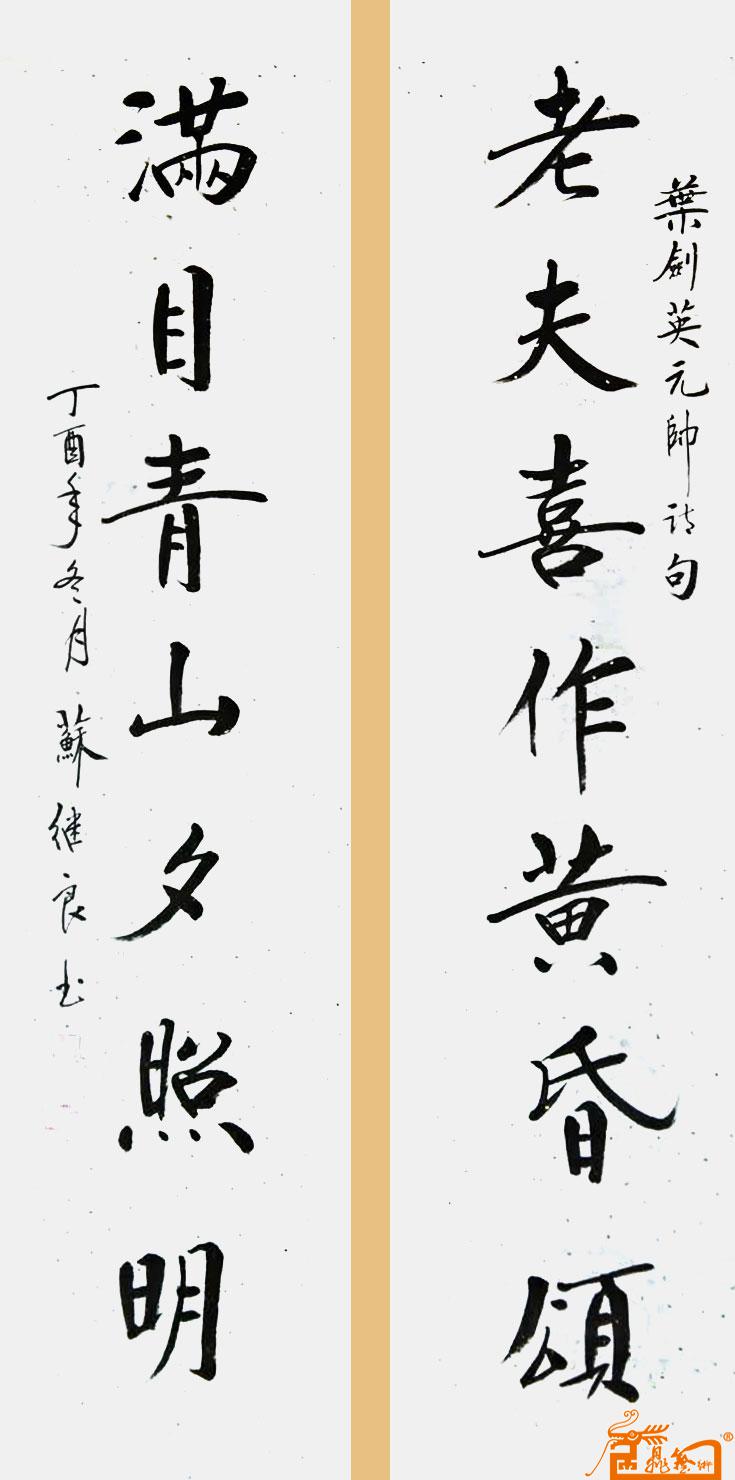 葉劍英元帥诗句
老夫喜作黄昏頌
滿目青山夕照明
丁酉年冬月蘇继良书